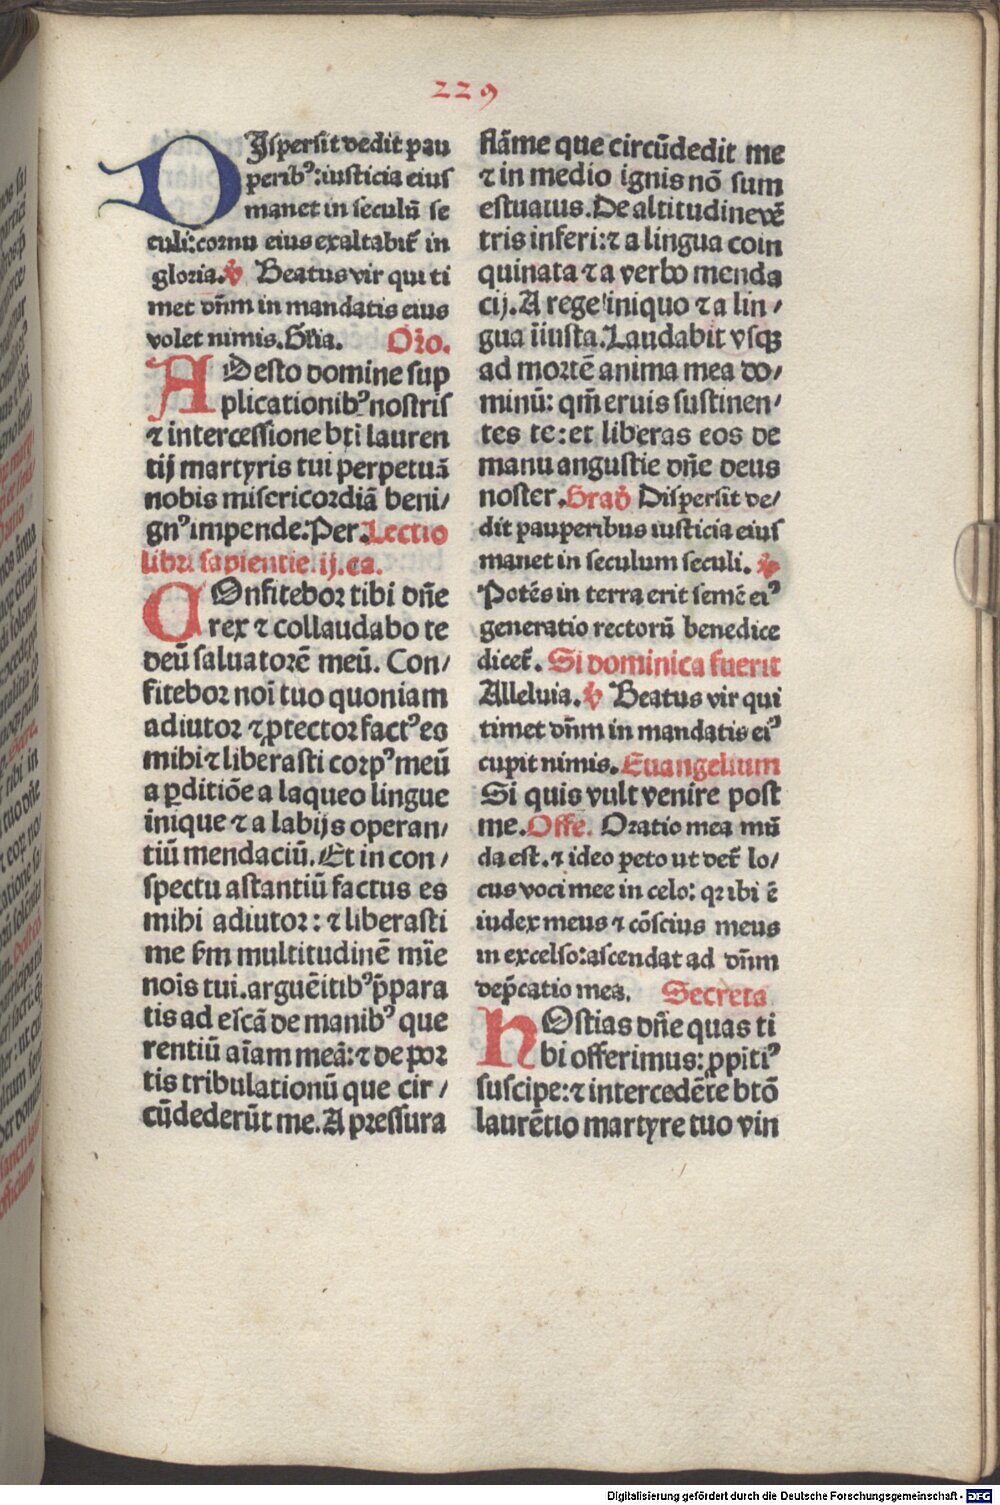 229
DIspersit dedit pau
perib⁹: iusticia eius
manet in seculū se
culi: cornu eius exaltabit̄ in
gloria. ℣ Beatus vir qui ti
met dn̄m in mandatis eius
volet nimis. Gl̄ia. Oro.
ADesto domine sup
plicationib⁹ nostris
⁊ intercessione bti lauren
tij martyris tui perpetuā
nobis misericordiā beni/
gn⁹ impende. Per. Lectio
libri sapientie. ij. ca.
COnfitebor tibi dn̄e
rex ⁊ collaudabo te
deū saluatorē meū. Con/
fitebor noī tuo quoniam
adiutor ⁊ ꝓtector fact⁹ es
mihi ⁊ liberasti corp⁹ meū
a ꝑditiōe a laqueo lingue
inique ⁊ a labijs operan/
tiū mendaciū. Et in con/
spectu astantiū factus es
mihi adiutor: ⁊ liberasti
me ẜm multitudinē mīe
noīs tui. arguēitib⁹ p̄para
tis ad escā de manib⁹ que
rentiū aīam meā: ⁊ de por
tis tribulationū que cir/
cūdederūt me. A pressura
flāme que circūdedit me
⁊ in medio ignis nō sum
estuatus. De altitudine vē
tris inferi: ⁊ a lingua coin
quinata ⁊ a verbo menda
cij. A rege iniquo ⁊ a lin/
gua iīusta. Laudabit vsqꝫ
ad mortē anima mea do/
minū: qm̄ eruis sustinen/
tes te: et liberas eos de
manu angustie dn̄e deus
noster. Grad̄ Dispersit de/
dit pauperibus iusticia eius
manet in seculum seculi. ℣
Potēs in terra erit semē ei⁹
generatio rectorū benedice
dicet̄. Si dominica fuerit
Alleluia. ℣ Beatus vir qui
timet dn̄m in mandatis ei⁹
cupit nimis. Euangelium
Si quis vult venire post
me. Offe. Oratio mea mū
da est. ⁊ ideo peto ut det̄ lo/
cus voci mee in celo: qr ibi ē
iudex meus ⁊ cōscius meus
in excelso: ascendat ad dn̄m
dep̄catio mea. Secreta
HOstias dn̄e quas ti
bi offerimus: ꝓpiti⁹
suscipe: ⁊ intercedēte btō
laurētio martyre tuo vin
Digitalisierung gefördert durch die Deutsche Forschungsgemeinschaft - DFG